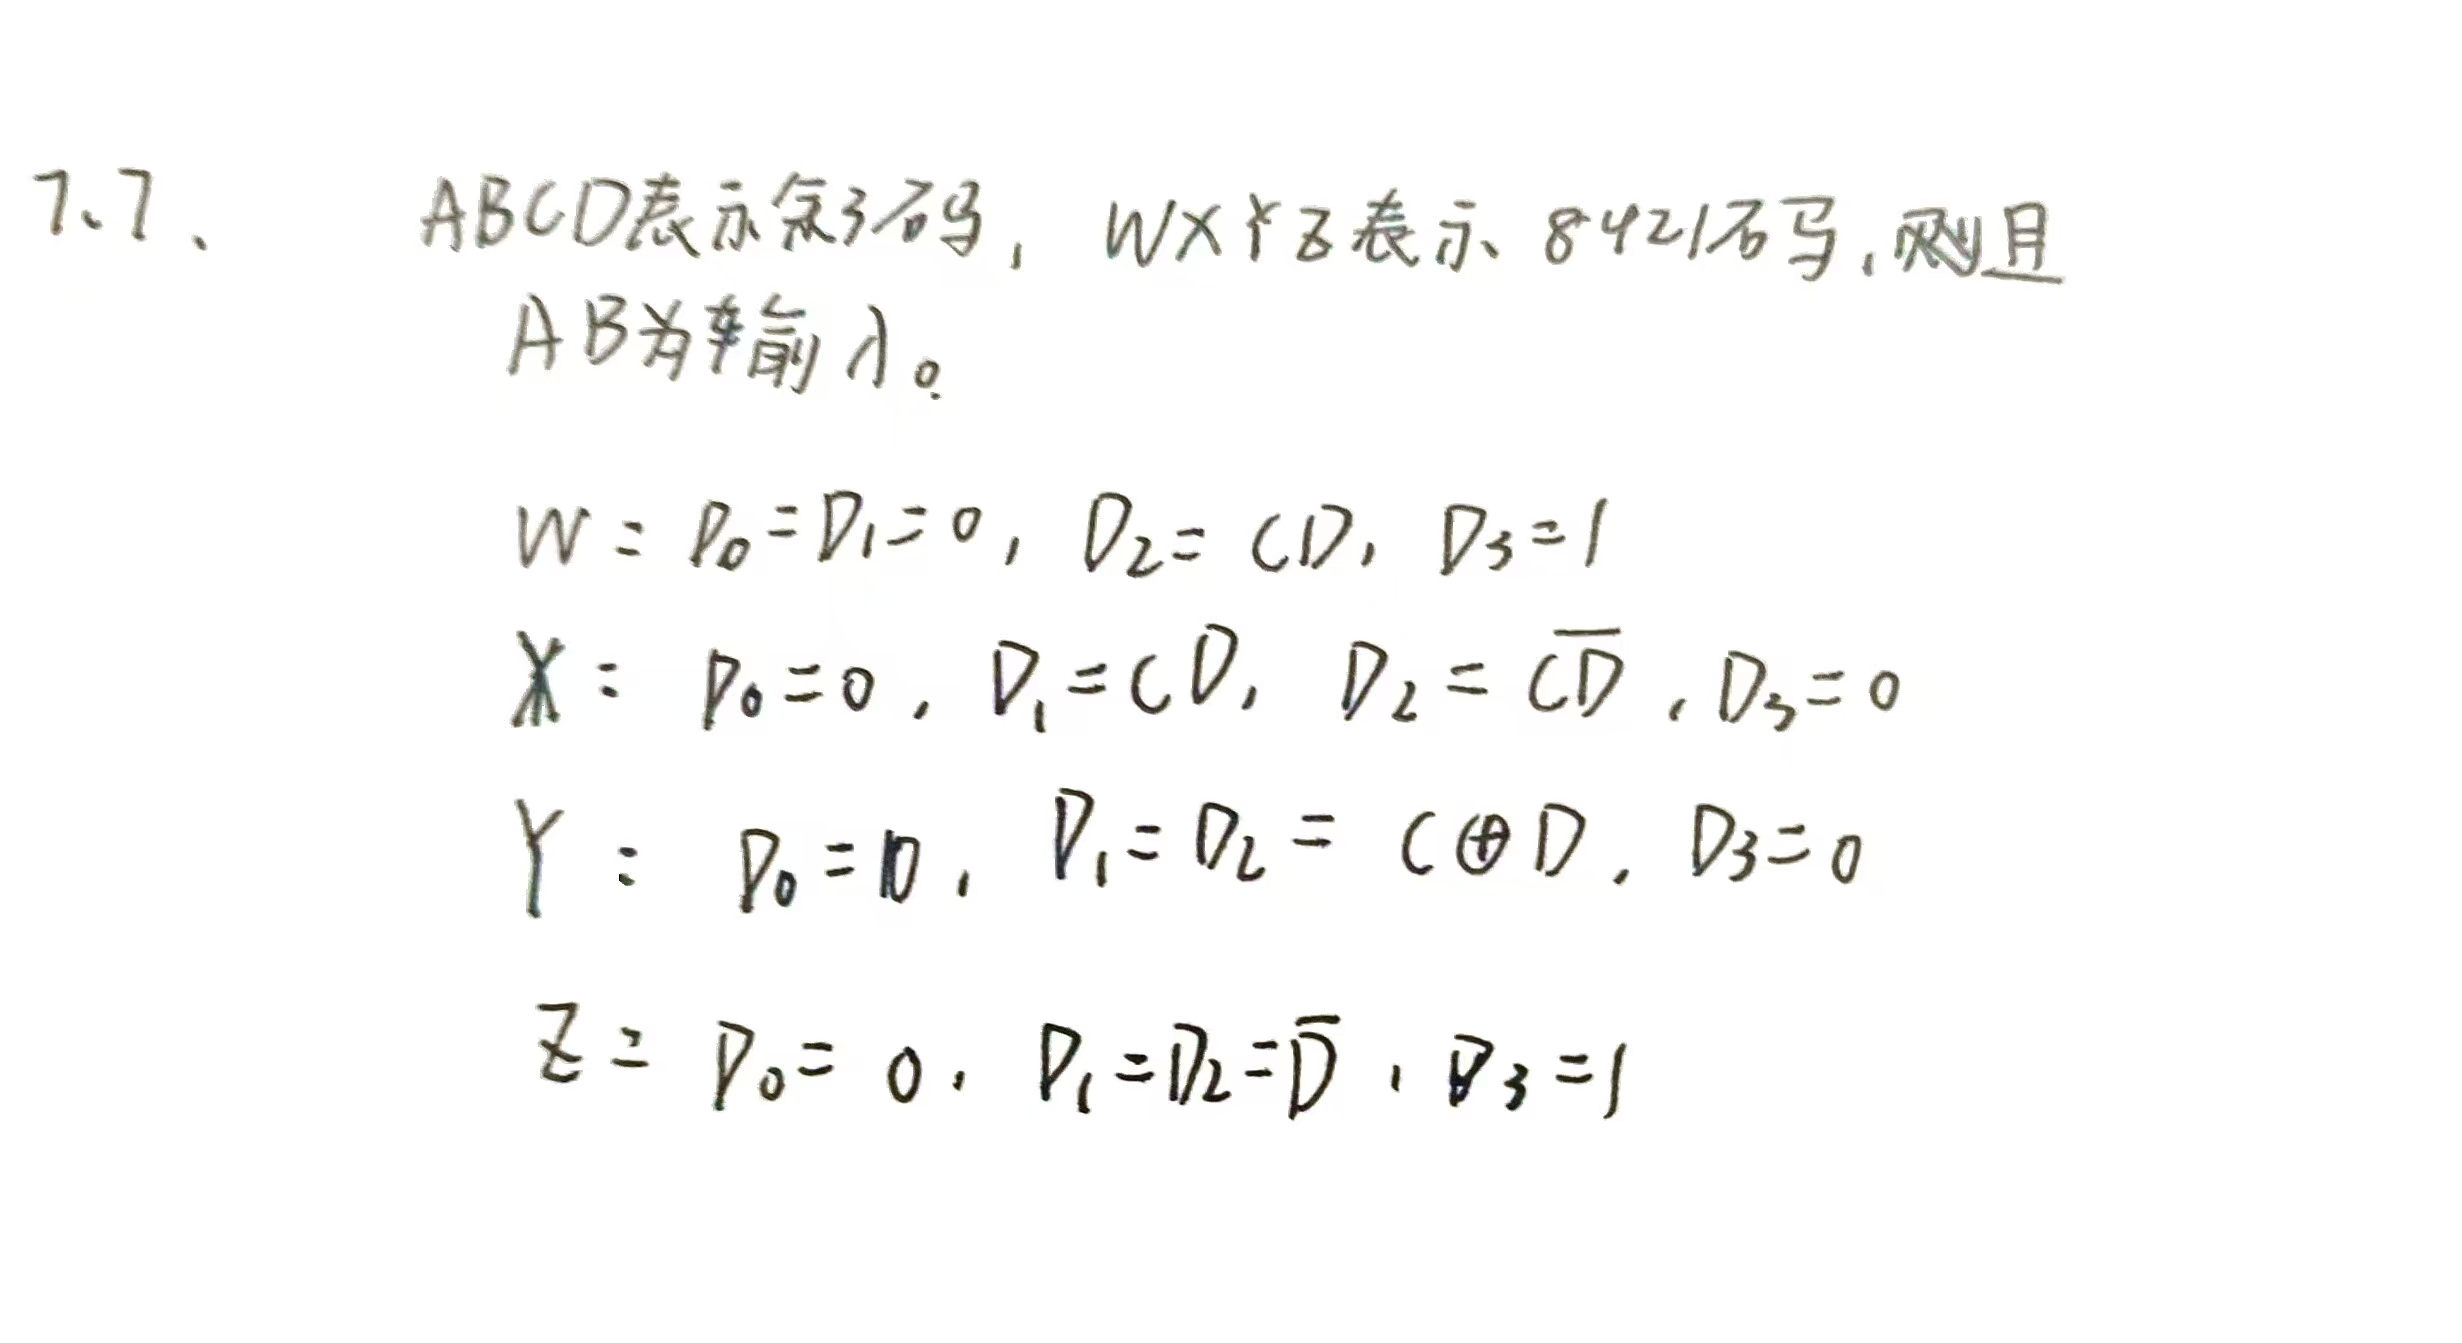 7.7、 ABCD表示余3码, WXYZ表示 8421码,则且
AB为输入。
W: D₀=D₁=0, D₂= CD, D₃=1
X: D₀=0, D₁=CD, D₂= \overline{CD}, D₃=0
Y: D₀=0, D₁=D₂= C⊕D, D₃=0
Z: D₀= 0, D₁=D₂=\overline{D}, D₃=1